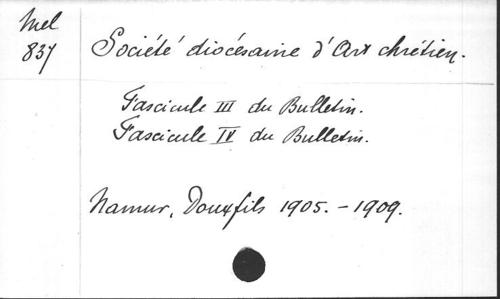 Mel
837
Société diocésaine d'Art chrétien.
Fascicule III du Bulletin.
Fascicule IV du Bulletin.
Namur, Douxfils 1905. - 1909.